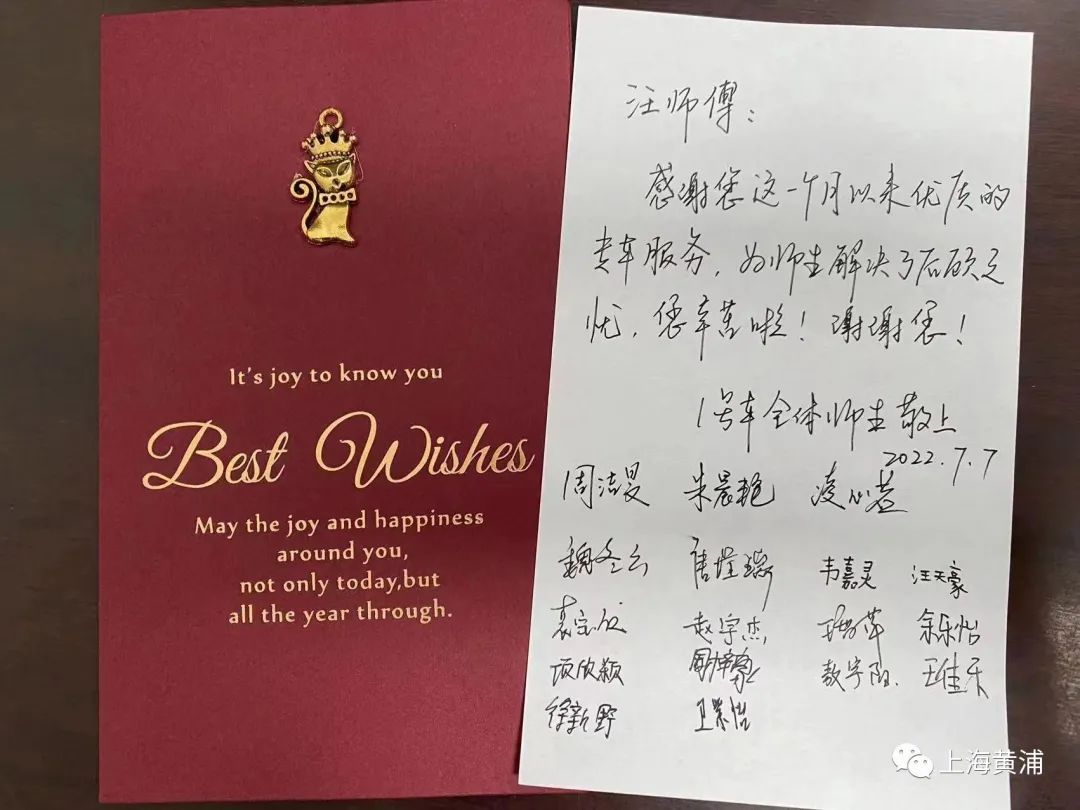 It's joy to know you
Best Wishes
May the joy and happiness
around you,
not only today,but
all the year through.
汪师傅：
感谢您这一个月以来优质的
专车服务，为师生解决了后顾之
忧，您辛苦啦！谢谢您！
1号车全体师生敬上
2022.7.7
周洁旻 朱晨艳 凌心若
魏冬云 韦嘉灵 汪天豪
袁宝欣 赵宇杰 余乐怡
项欣颖 王佳乐
徐新野
上海黄浦